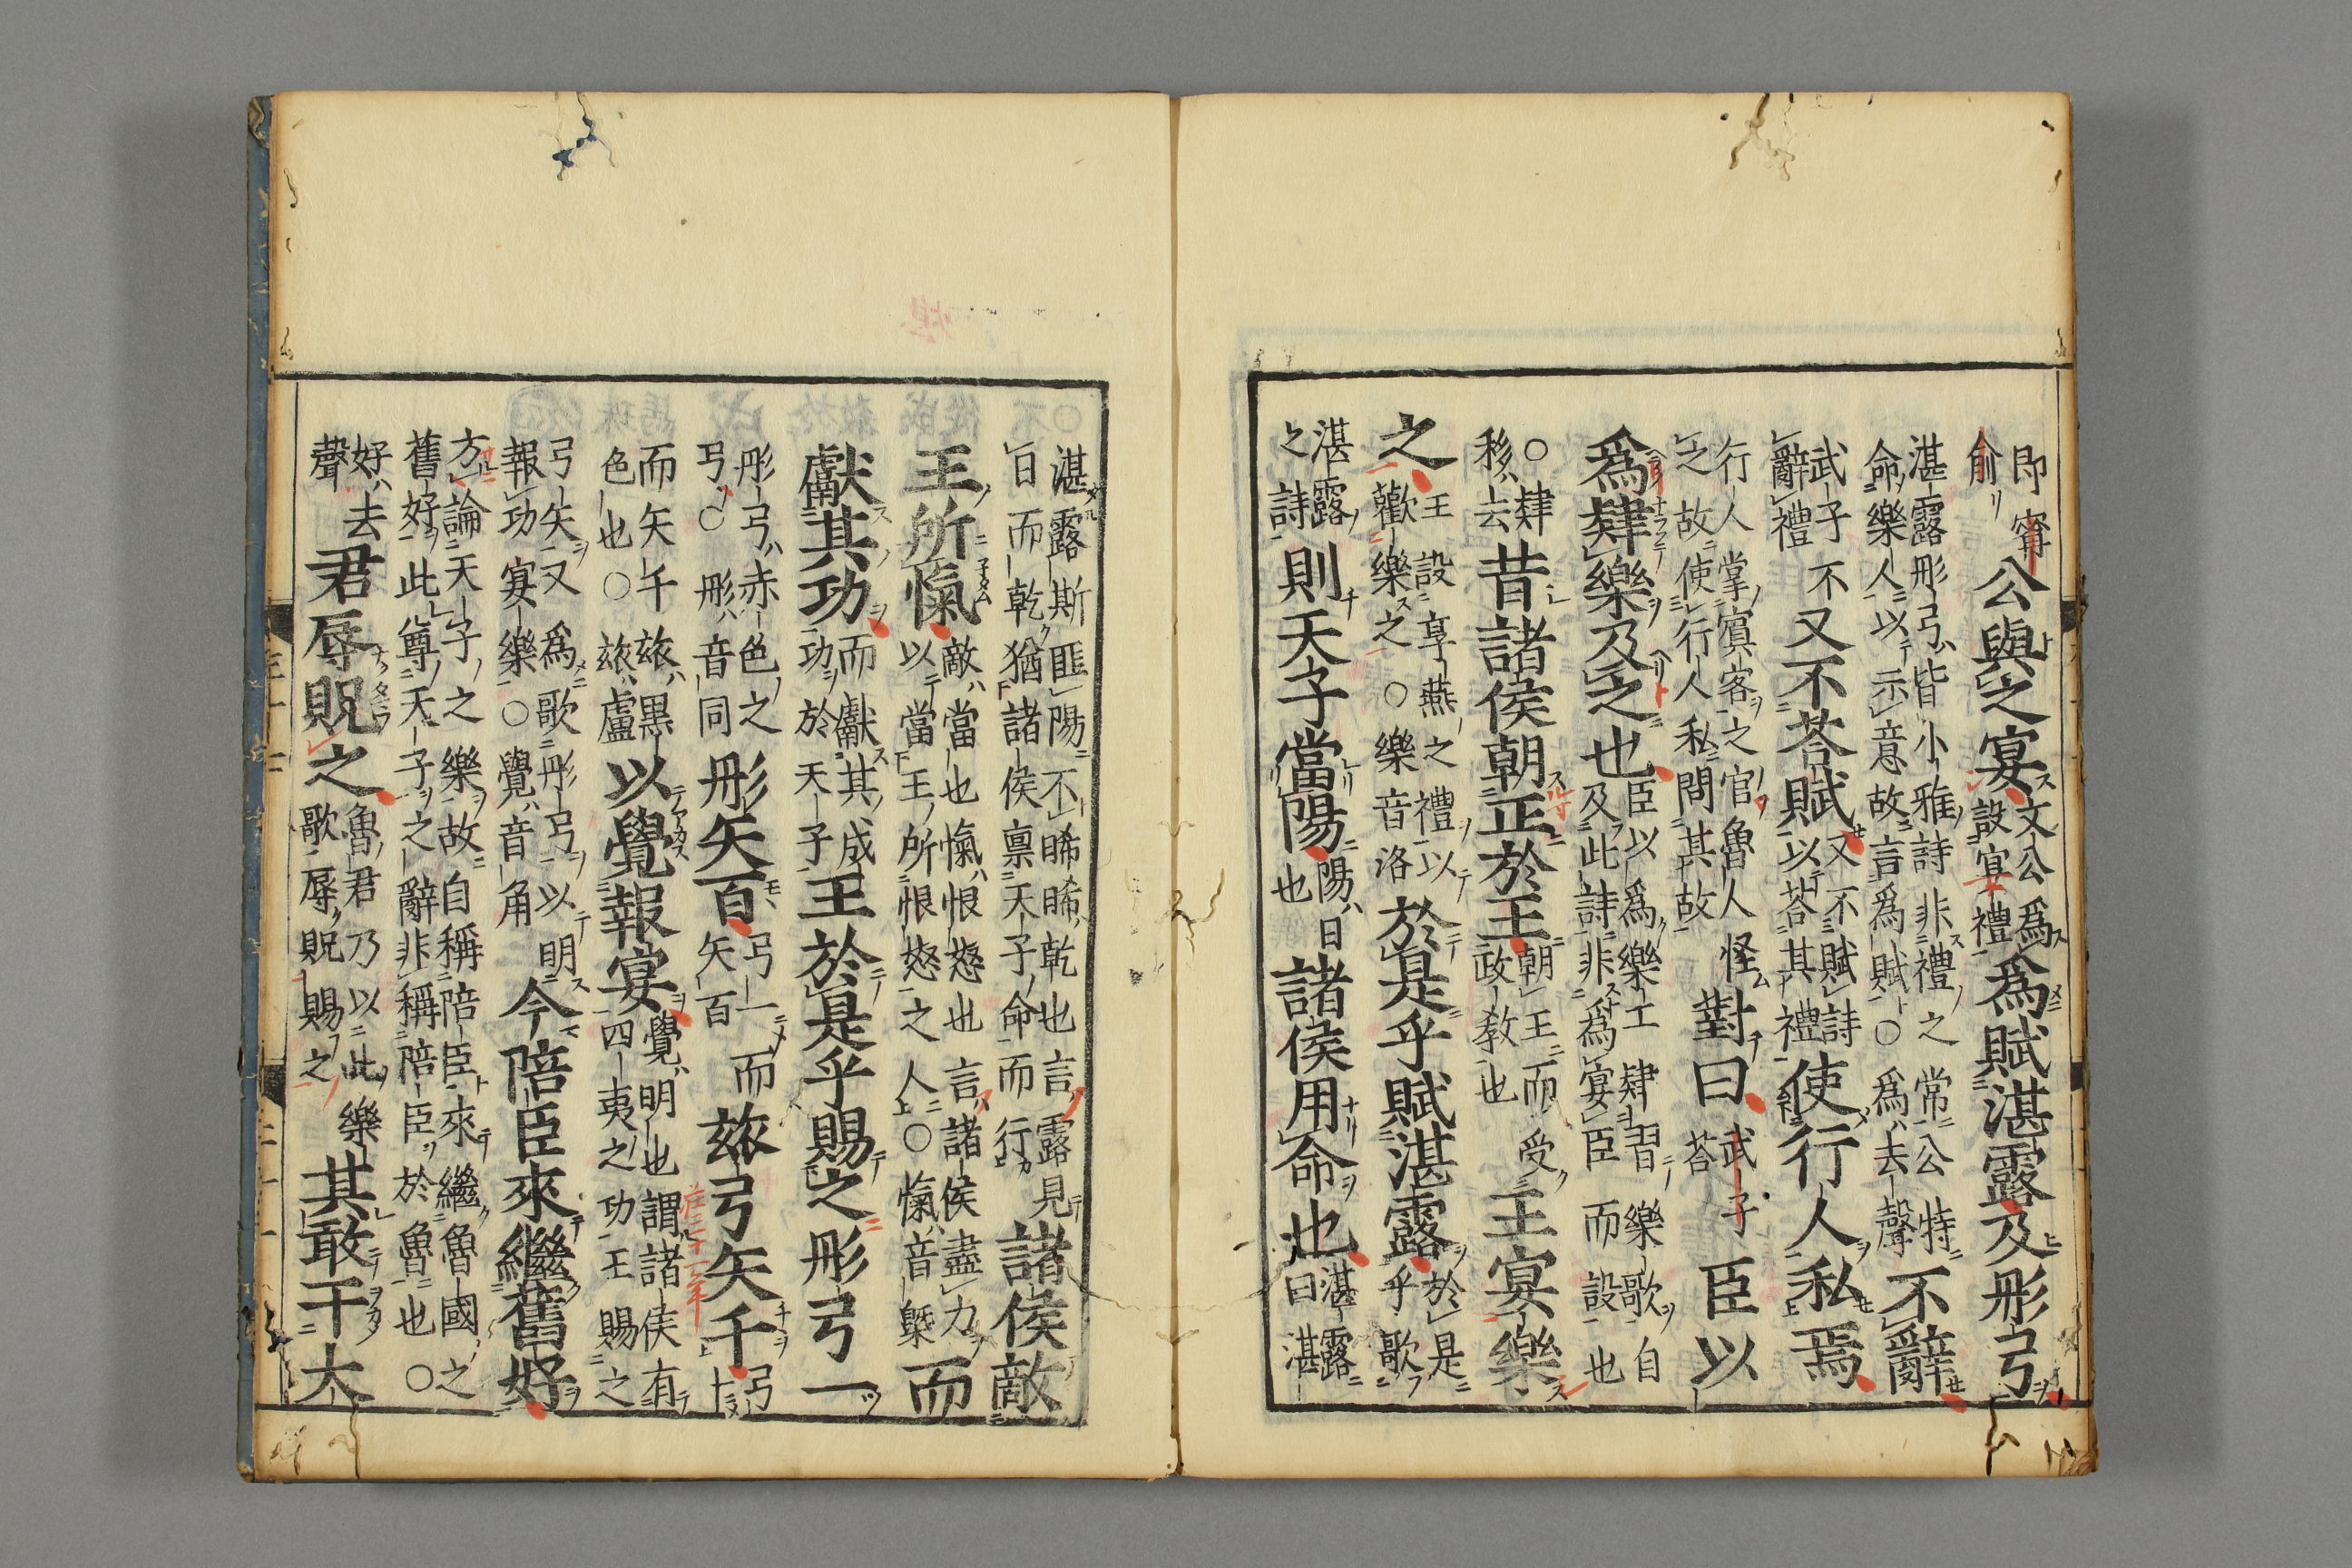 即甯俞公與之宴文公爲設宴禮爲賦湛露及彤弓
湛露彤弓皆小雅詩非禮之常公特命樂人以示意故言爲賦○爲去聲不辭
武子不辭禮又不荅賦又不賦詩以荅其禮使行人私焉
行人掌賓客之官魯人怪之故使行人私問其故對曰武子荅臣以
爲肄樂及之也臣以爲樂工肄習樂歌自及此詩非爲宴臣而設也
○肄移去昔諸侯朝正於王朝王而受政教也王宴樂
之王設享燕之禮以歡樂之○樂音洛於是乎賦湛露於是乎歌
湛露之詩則天子當陽陽日也諸侯用命也湛露曰湛
湛露斯匪陽不晞晞乾也言露見日而乾猶諸侯禀天子命而行諸侯敵
王所愾敵當也愾恨怒也言諸侯盡力以當王所恨怒之人○愾音槩而
獻其功而獻其成功於天子王於是乎賜之彤弓一
彤弓赤色之弓○彤音同彤矢百弓一而矢百玈弓矢千弓十
而矢千玈黑色也○玈盧以覺報宴覺明也謂諸侯有四夷之功王賜之
弓矢又爲歌彤弓以明報功宴樂○覺音角今陪臣來繼舊好
方論天子之樂故自稱陪臣來繼魯國之舊好此尊天子之辭非稱陪臣於魯也○
好去聲君辱貺之魯君乃以此樂歌辱貺賜之其敢干大